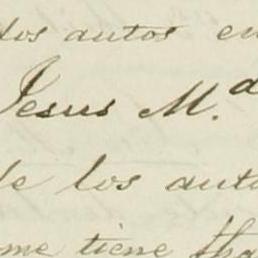 dos autos en
Jesus M.a
de los auto
me tiene tha